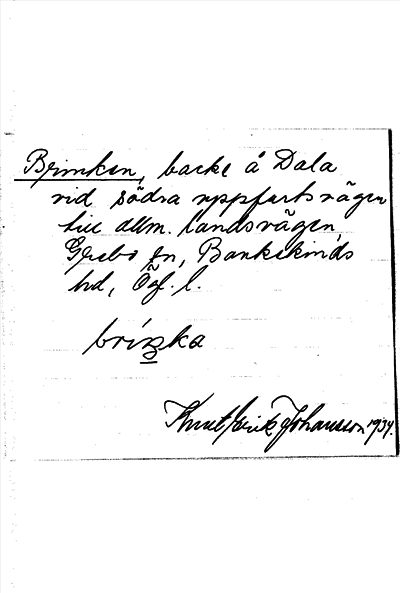 Brinken, backe å Dala
vid södra uppfartsvägen
till allm. landsvägen,
Grebo sn, Bankekinds
hd, Ög. l.
bríŋka
Knut Erik Johansson 1934.